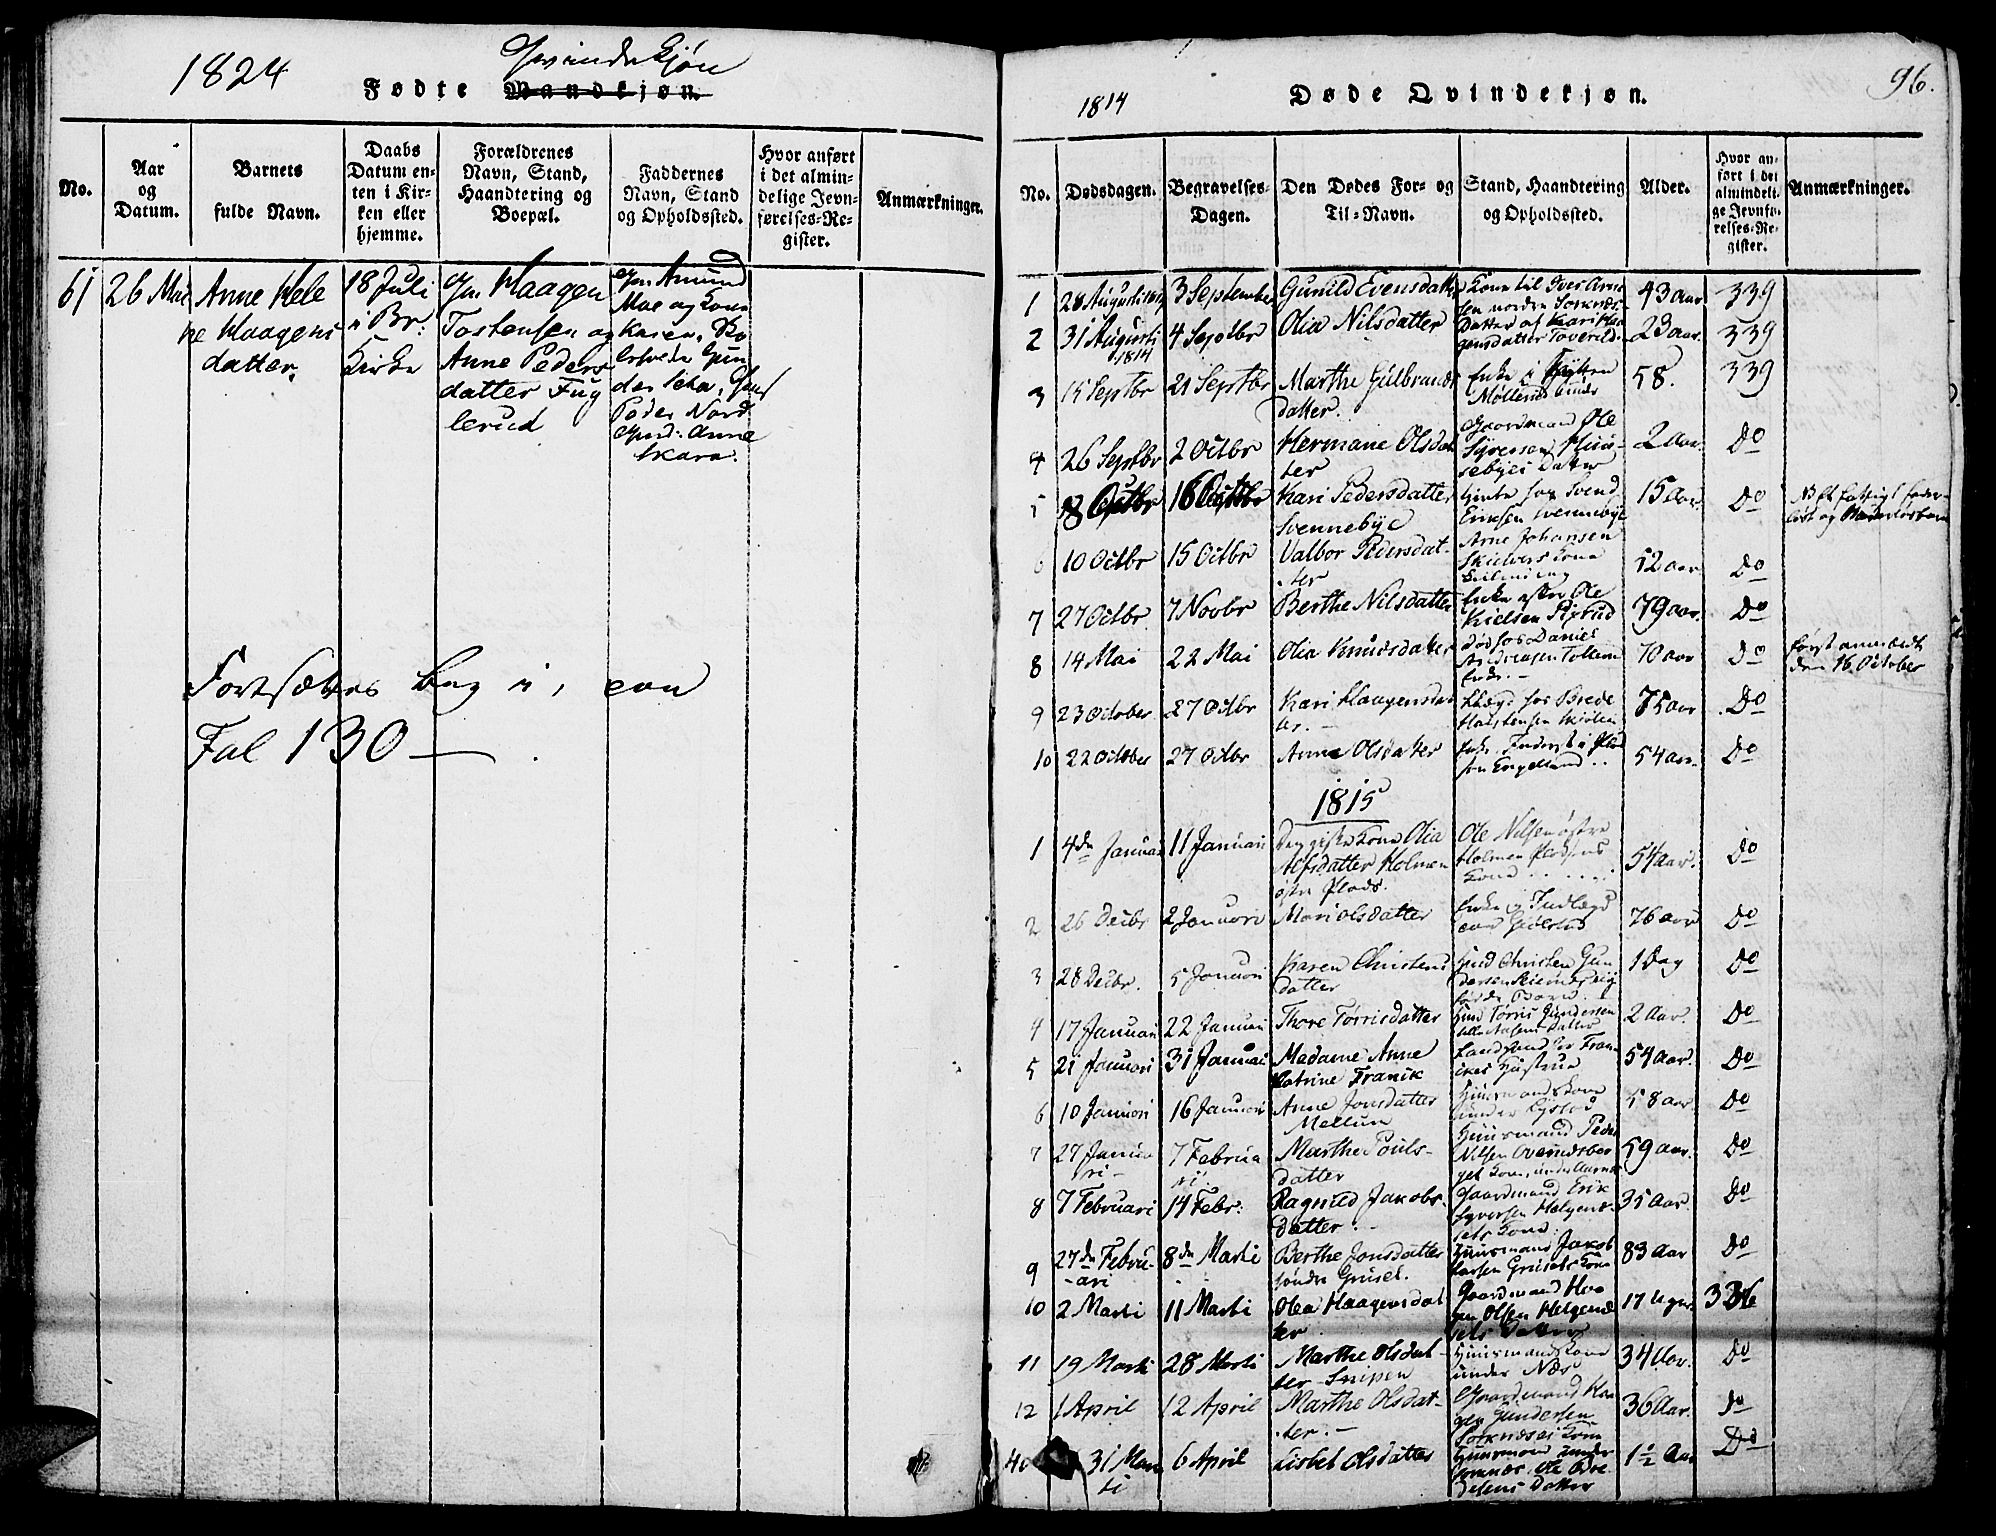 1824
Qvindekjøn
Fødte Mandkjøn.
No.
Aar
og
Datum.
Barnets
fulde Navn.
Daabs
Datum en-
ten i Kir-
ken eller
hjemme.
Forældrenes
Navn, Stand,
Haandtering og
Boepæl.
Faddernes
Navn, Stand
og Opholdssted.
Hvor anført
i det almin-
delige Jevn-
førelses-Re-
gister.
Anmærkninger.
61
26 Mai
Anne Hele
ne Haagens
datter.
18 Juli
i Br:
Kirke
Haagen
Tostensen og
Anne Peders
datter Fug
lerud
Amund
Moe og Kone
Karen,
Peder Nord
Anne
Skara.
Fortsættes bag i, paa
Fol 130 —
96.
1814
Døde Qvindekjøn.
No.
Dødsdagen.
Begravelses-
Dagen.
Den Dødes For- og
Til-Navn.
Stand, Haandtering
og Opholdssted.
Alder.
Hvor an-
ført i det
almindeli-
ge Jevnfø-
relses-Re-
gister.
Anmærkninger.
1
28 Augusti 1814
3 September
Gunild Evensdatter
Kone til Iver Arne
sen nordre Sorknes
43 aar
339
2
31 Augusti
1814
4 Septbr
Olia Nilsdatter
Datter af Kari Haa
gensdatter
23 aar.
339
3
15 Septbr
21 Septbr
Marthe Gulbrands
datter.
Enke i
58.
339
4
26 Septbr
2 Octbr
Hermane Olsdat
ter
Gaardmand Ole
Syversen
Datter
2 aar.
Do
5
8 Octbr
16 Octbr
Kari Pedersdatter
Svennebye
hos Svend
Eriksen Svennebye
15 aar.
Do
6
10 Octbr
15 Octbr
Valbor Pedersdat-
ter
Arne Johansen
Kone
52 aar
Do
7
27 Octbr
7 Novbr
Berthe Nilsdatter
Enke efter Ole
Kielsen
79 aar.
Do
8
14 Mai
22 Mai
Olia Knudsdatter
død hos Daniel
Andreasen
Enke. -
70 aar
Do
først anmeldt
den 16 October
9
23 October
27 Octbr
Kari Haagensdat
ter. -
Lægd hos Brede
Halstensen
75 aar
Do
10
22 Octbr
27 Octbr
Anne Olsdatter
Engelland
54 aar.
Do
1815
1
4de Januari
11 Januari
Den gifte Kone Olia
Alfsdatter Holmen
østre Plads.
Ole Nilsen østre
Holmen Pladsens
Kone
54 aar.
Do
2
26 Decbr
2 Januari
Mari Olsdatter
Enke og Indlægd
paa
76 aar
Do
3
28 Decbr.
5 Januari
Karen Christens
datter
Christen Gun
dersen
Barn.
1 Dag
Do
4
17 Januari
22 Januari
Thore Torrisdatter
Torris Gundersen
Datter
2 Aar.
Do
5
21 Januari
31 Januari
Madame Anne
Katrine Franik
Hustrue
54 aar.
Do
6
10 Januari
16 Januari
Anne Jonsdatter
Mellum
Huusmands Kone
under
58 aar.
Do
7
27 Janua
ri -
7 Februa
ri.
Marthe Pouls-
datter
Huusmand Peder
Nilsen
59 aar.
Do
8
7 Februari
14 Febr:
Ragnild Jakobs-
datter. -
Gaardmand Erik
Syversen Helgenæ-
sets Kone
35 Aar.
Do
9
27de Febru-
-ari
8de Marti
Berthe Jonsdatter
søndre Gruset.
Huusmand Jakob
Larsen Grusets Kone
83 Aar
Do
10
2 Marti
11 Marti
Olea Haagensdat
ter
Gaardmand Haa
gen Olsen Helgenæ
sets Datter
17 Uger.
336
11
19 Marti
28 Marti
Marthe Olsdat-
ter Snippen
Huusmandskone
under Næs
34 Aar.
Do
12
1 April
12 April
Marthe Olsdat-
ter. -
Gaardmand Haa
gen Gundersen
Sorknæses Kone
36 Aar.
Do
31 Mar
ti
6 April
Lisbet Olsdatter
Huusmand under
Sorknæs, Ole
Datter
1½ Aar
Do